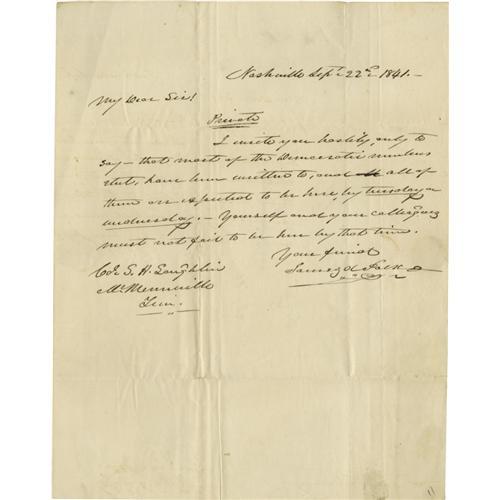 Nashville Sept. 22nd 1841.
My Dear Sir!
Private
I write you hastily, only to
say - that most of the Democratic members
elect, have been written to, and all of
them are expected to be here, by tuesday or
wednesday. - Yourself and your colleagues
must not fail to be here by that time.
Your friend
James K. Polk
Col. S. H. Laughlin
McMinnville
Tenn.